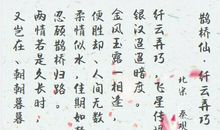 鹊桥仙·纤云弄巧
北宋 秦观
纤云弄巧、飞星传
银汉迢迢暗度。
金风玉露一相逢、
便胜却、人间无数
柔情似水、佳期如
忍顾鹊桥归路
两情若是久长时
又岂在、朝朝暮暮